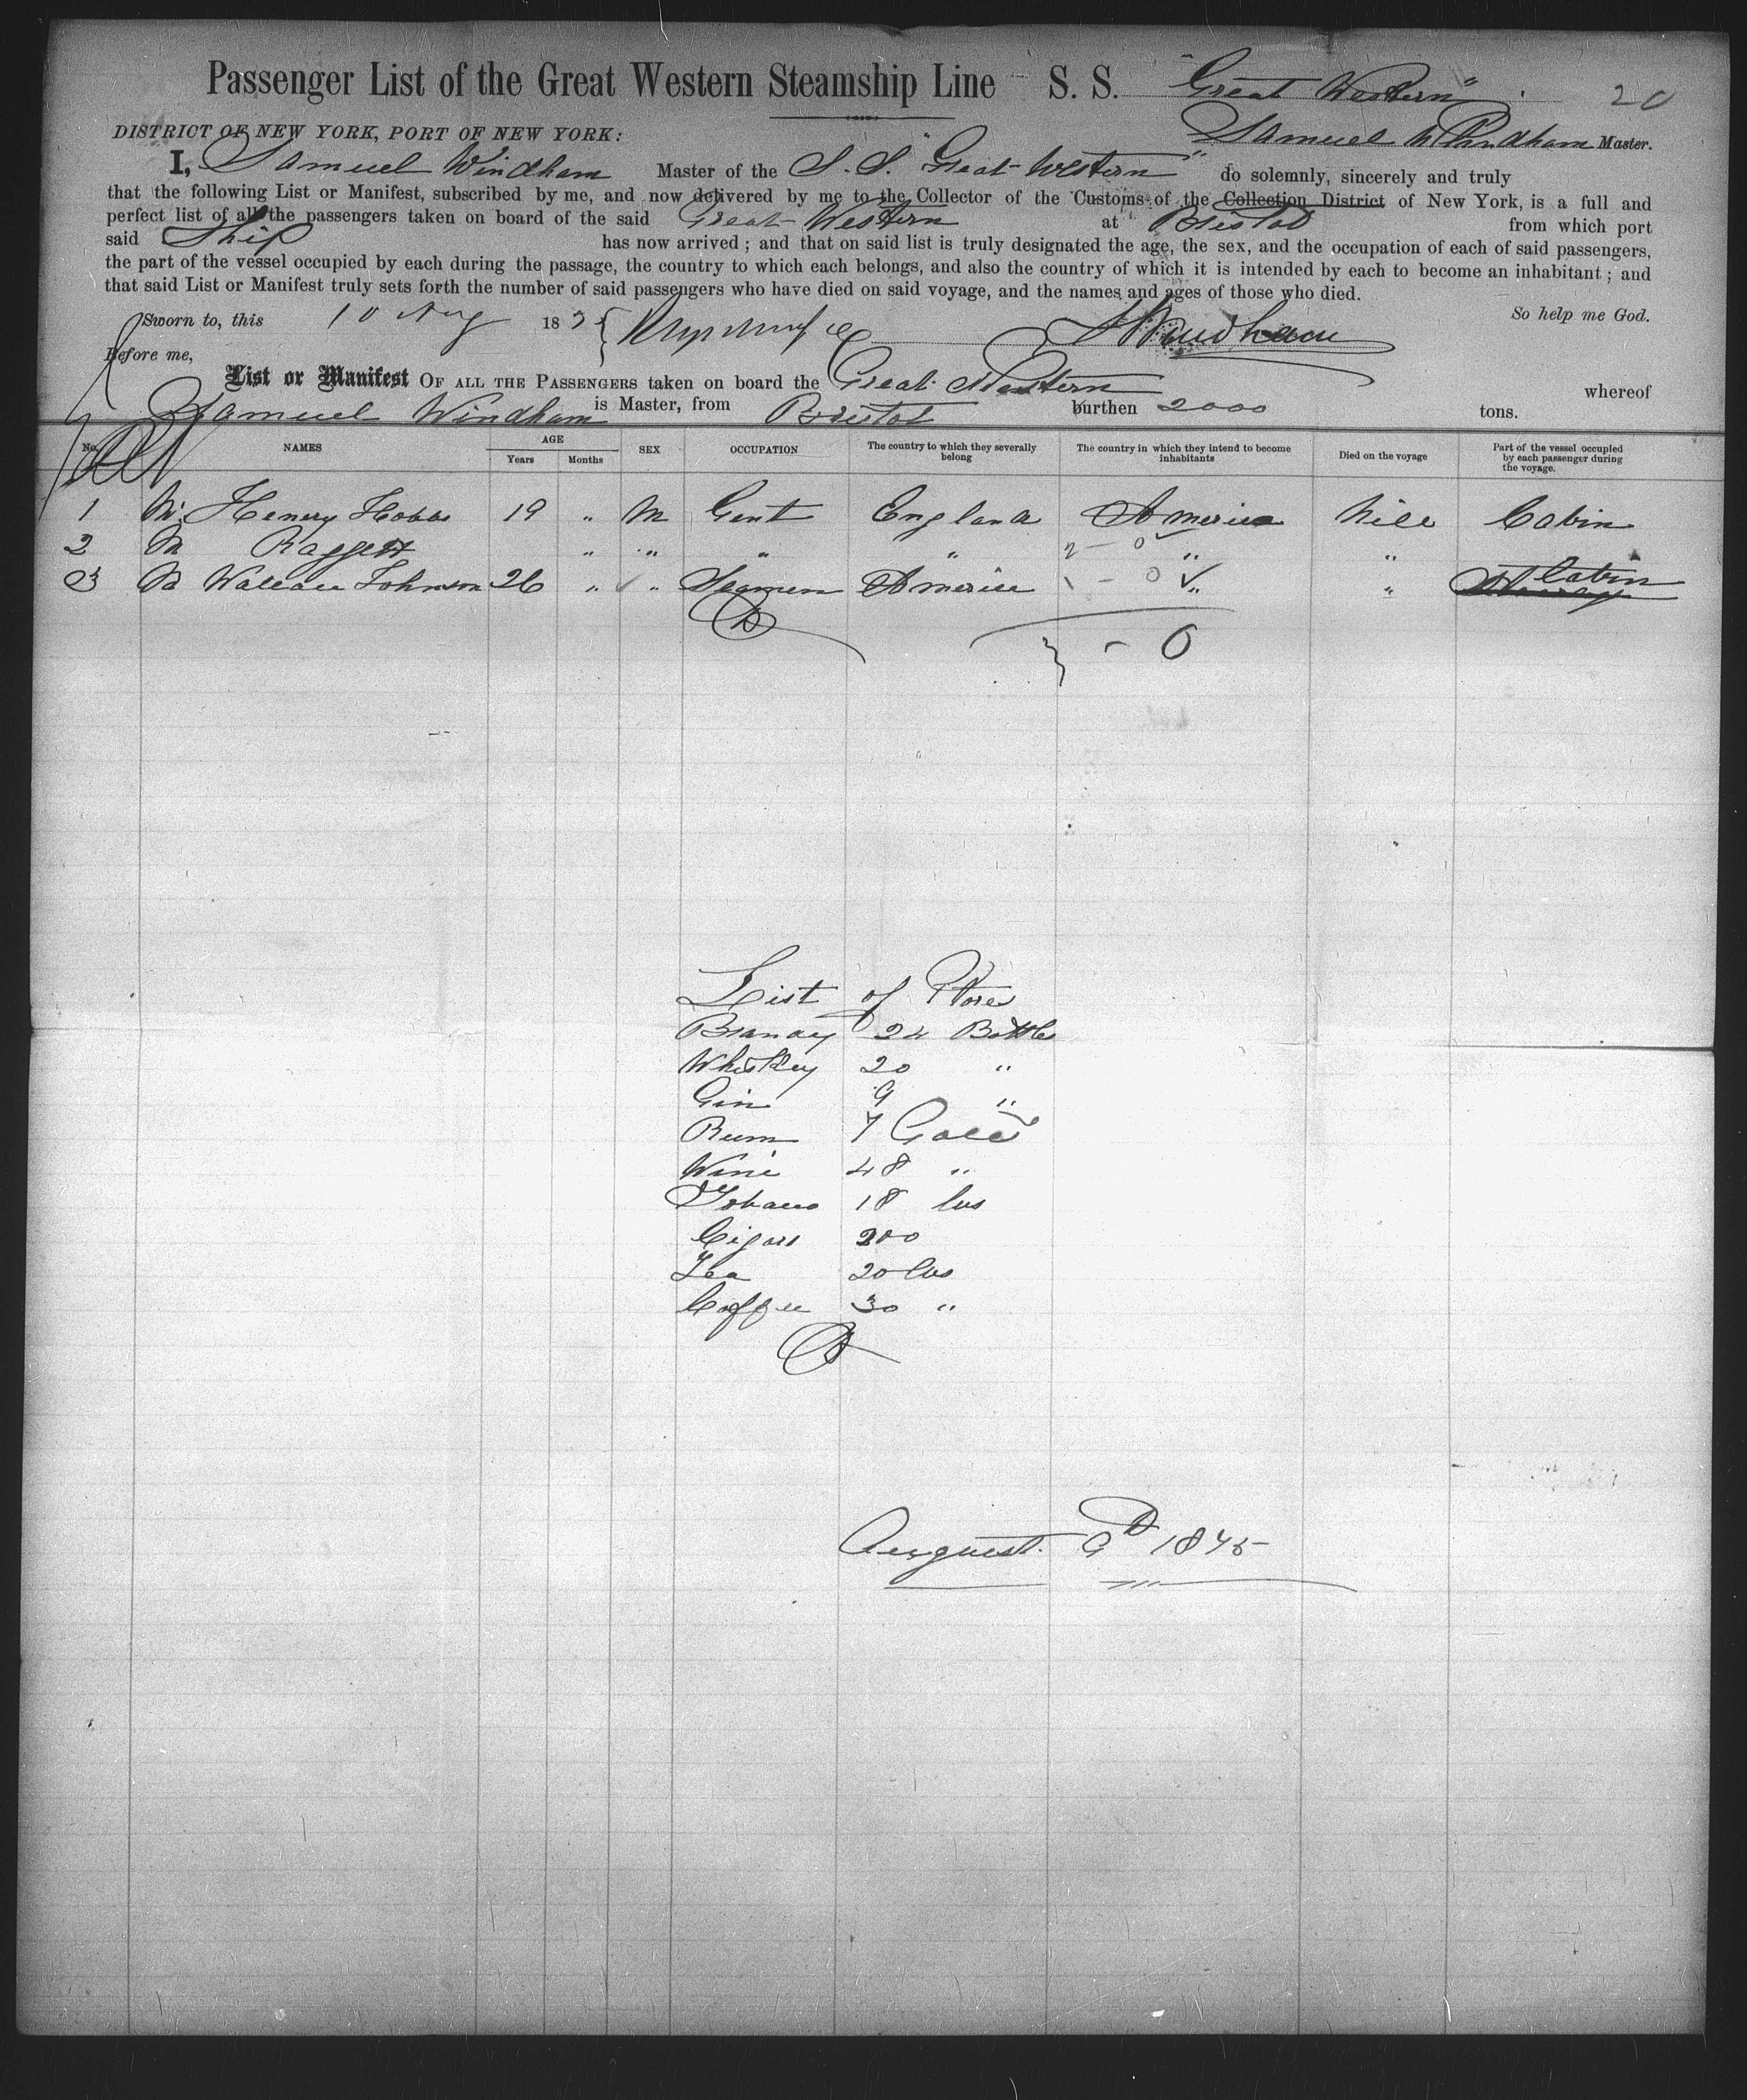 Passenger List of the Great Western Steamship Line S. S. "Great Western" 20
DISTRICT OF NEW YORK, PORT OF NEW YORK: Samuel Windham Master.
I, Samuel Windham Master of the S. S. "Great Western" do solemnly, sincerely and truly
that the following List or Manifest, subscribed by me, and now delivered by me to the Collector of the Customs of the Collection District of New York, is a full and
perfect list of all the passengers taken on board of the said Great Western at Bristol from which port
said Ship has now arrived; and that on said list is truly designated the age, the sex, and the occupation of each of said passengers,
the part of the vessel occupied by each during the passage, the country to which each belongs, and also the country of which it is intended by each to become an inhabitant; and
that said List or Manifest truly sets forth the number of said passengers who have died on said voyage, and the names and ages of those who died.
Sworn to, this 10 Aug 187 SWindham So help me God.
Before me,
List or Manifest OF ALL THE PASSENGERS taken on board the Great Western whereof
Samuel Windham is Master, from Bristol burthen 2000 tons.
No. NAMES AGE Years Months SEX OCCUPATION The country to which they severally belong The country in which they intend to become inhabitants Died on the voyage Part of the vessel occupied by each passenger during the voyage.
1 Mr Henery Hobbs 19 " M Gent England America Nill Cabin
2 M Raggett " " " " 2 - 0 " " "
3 Wallace Johnson 26 " " Seamen America 1 - 0 " " Cabin
} - 0
List of Stores
Brandy 24 Bottles
Whiskey 20 "
Gin 9 "
Rum 7 Galls
Wine 48 "
Tobacco 18 lbs
Cigars 200
Tea 20 lbs
Coffee 30 "
August 9th 1875